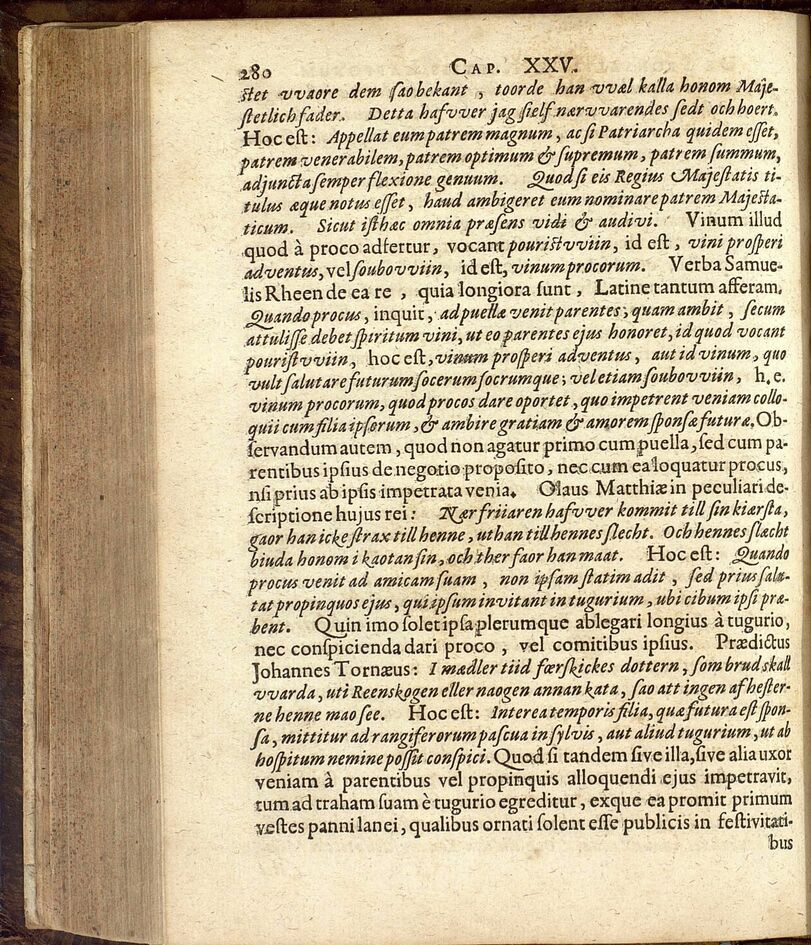 280 CAP. XXV.
ſtet vvaore dem ſaobekant, toorde han vvæl kalla honom Maje-
ſtetlichfader. Detta hafvver jag ſielf nærvvarendes ſedt och hoert.
Hoc eſt: Appellat eum patrem magnum, ac ſi Patriarcha quidem eſſet,
patrem venerabilem, patrem optimum & ſupremum, patrem ſummum,
adjuncta ſemper flexione genuum. Quod ſi eis Regius Majeſtatis ti-
tulus æque notus eſſet, haud ambigeret eum nominare patrem Majeſta-
ticum. Sicut iſthæc omnia præſens vidi & audivi. Vinum illud
quod à proco adfertur, vocant pouriſtvviin, id eſt, vini proſperi
adventus, vel ſoubovviin, id eſt, vinum procorum. Verba Samue-
lis Rheen de ea re, quia longiora ſunt, Latine tantum afferam.
Quando procus, inquit, ad puellæ venit parentes; quam ambit, ſecum
attuliſſe debet ſpiritum vini, ut eo parentes ejus honoret, id quod vocant
pouriſtvviin, hoc eſt, vinum proſperi adventus, aut id vinum, quo
vult ſalutare futurum ſocerum ſocrumque; vel etiam ſoubovviin, h. e.
vinum procorum, quod procos dare oportet, quo impetrent veniam collo-
quii cum filia ipſorum, & ambire gratiam & amorem ſponſæ futuræ. Ob-
ſervandum autem, quod non agatur primo cum puella, ſed cum pa-
rentibus ipſius de negotio propoſito, nec cum ea loquatur procus,
nſi prius ab ipſis impetrata venia. Olaus Matthiæ in peculiari de-
ſcriptione hujus rei: Nær friiaren hafvver kommit till ſin kiærſta,
gaor han icke ſtrax till henne, uthan till hennes ſlecht. Och hennes ſlæcht
biuda honom i kaotan ſin, och ther faor han maat. Hoc eſt: Quando
procus venit ad amicam ſuam, non ipſam ſtatim adit, ſed prius ſalu-
tat propinquos ejus, qui ipſum invitant in tugurium, ubi cibum ipſi præ-
bent. Quin imo ſolet ipſa plerumque ablegari longius à tugurio,
nec conſpicienda dari proco, vel comitibus ipſius. Prædictus
Johannes Tornæus: I mædler tiid færſkickes dottern, ſom brud skall
vvarda, uti Reenskogen eller naogen annan kata, ſao att ingen af heſter-
ne henne mao ſee. Hoc eſt: Interea temporis filia, quæ futura eſt ſpon-
ſa, mittitur ad rangiferorum paſcua in ſylvis, aut aliud tugurium, ut ab
hoſpitum nemine poſſit conſpici. Quod ſi tandem ſive illa, ſive alia uxor
veniam à parentibus vel propinquis alloquendi ejus impetravit,
tum ad traham ſuam è tugurio egreditur, exque ea promit primum
veſtes panni lanei, qualibus ornati ſolent eſſe publicis in feſtivitati-
bus